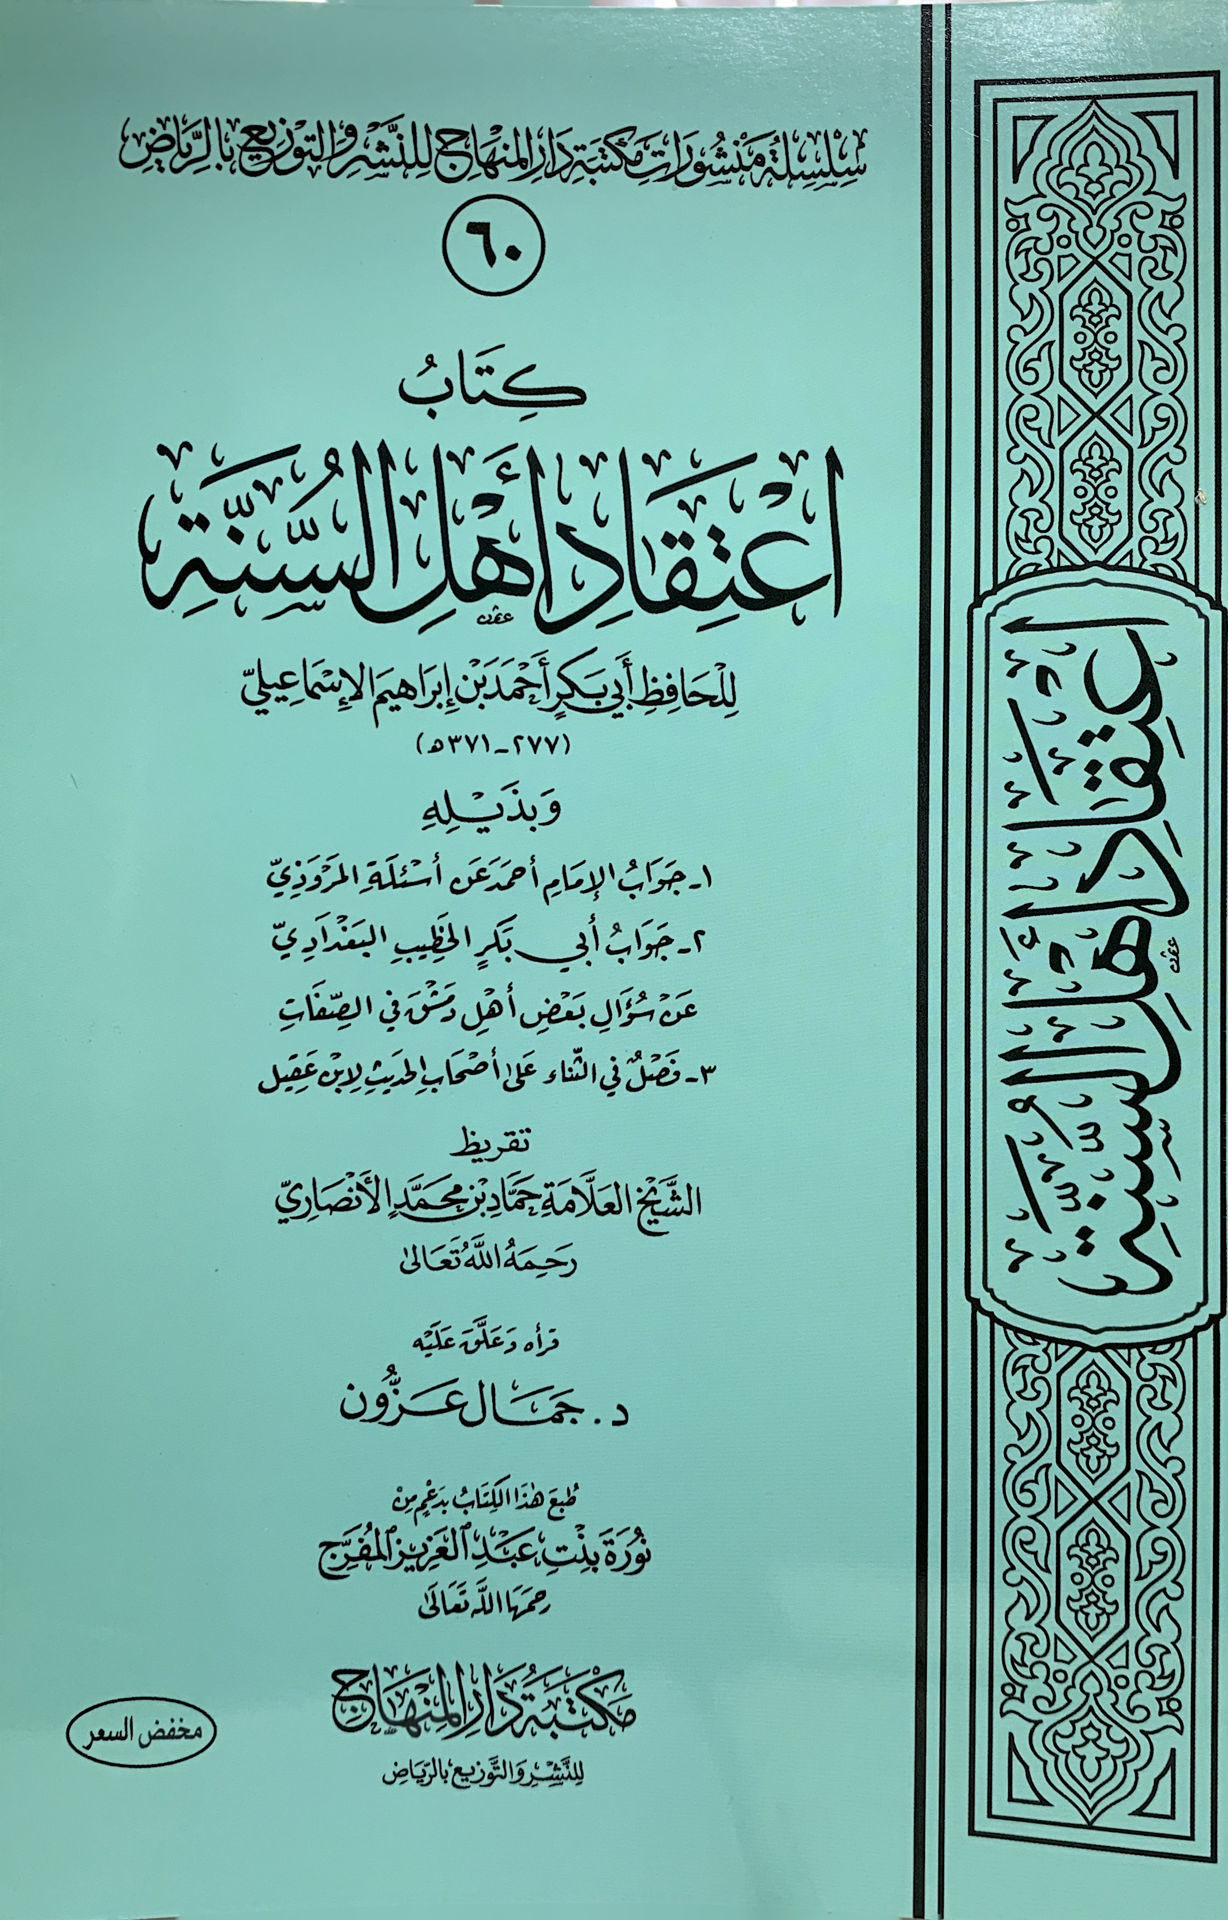 سِلْسِلَةُ مَنْشُورَاتِ مَكْتَبَةِ دَارِ المِنْهَاجِ لِلنَّشْرِ وَالتَّوْزِيعِ بِالرِّيَاضِ
٦٠
كِتَابُ
اعْتِقَادِ أَهْلِ السُّنَّةِ
لِلْحَافِظِ أَبِي بَكْرٍ أَحْمَدَ بْنِ إِبْرَاهِيمَ الإِسْمَاعِيلِيِّ
(٢٧٧ - ٣٧١ هـ)
وَبِذَيْلِهِ
١- جَوَابُ الإِمَامِ أَحْمَدَ عَنْ أَسْئِلَةِ المَرُّوذِيِّ
٢- جَوَابُ أَبِي بَكْرٍ الخَطِيبِ البَغْدَادِيِّ
عَنْ سُؤَالِ بَعْضِ أَهْلِ دِمَشْقَ فِي الصِّفَاتِ
٣- فَصْلٌ فِي الثَّنَاءِ عَلَى أَصْحَابِ الحَدِيثِ لِابْنِ عَقِيلٍ
تقريظ
الشَّيْخِ العَلَّامَةِ حَمَّادِ بْنِ مُحَمَّدٍ الأَنْصَارِيِّ
رَحِمَهُ اللَّهُ تَعَالَى
قرأه وَعَلَّقَ عَلَيْهِ
د. جَمَال عَزُّون
طُبِعَ هَذَا الكِتَابُ بِدَعْمٍ مِنْ
نُورَةَ بِنْتِ عَبْدِ العَزِيزِ المُفَرِّج
رَحِمَهَا اللَّهُ تَعَالَى
مَكْتَبَةُ دَارِ المِنْهَاجِ
لِلنَّشْرِ وَالتَّوْزِيعِ بِالرِّيَاضِ
مخفض السعر
اعْتِقَادِ أَهْلِ السُّنَّةِ